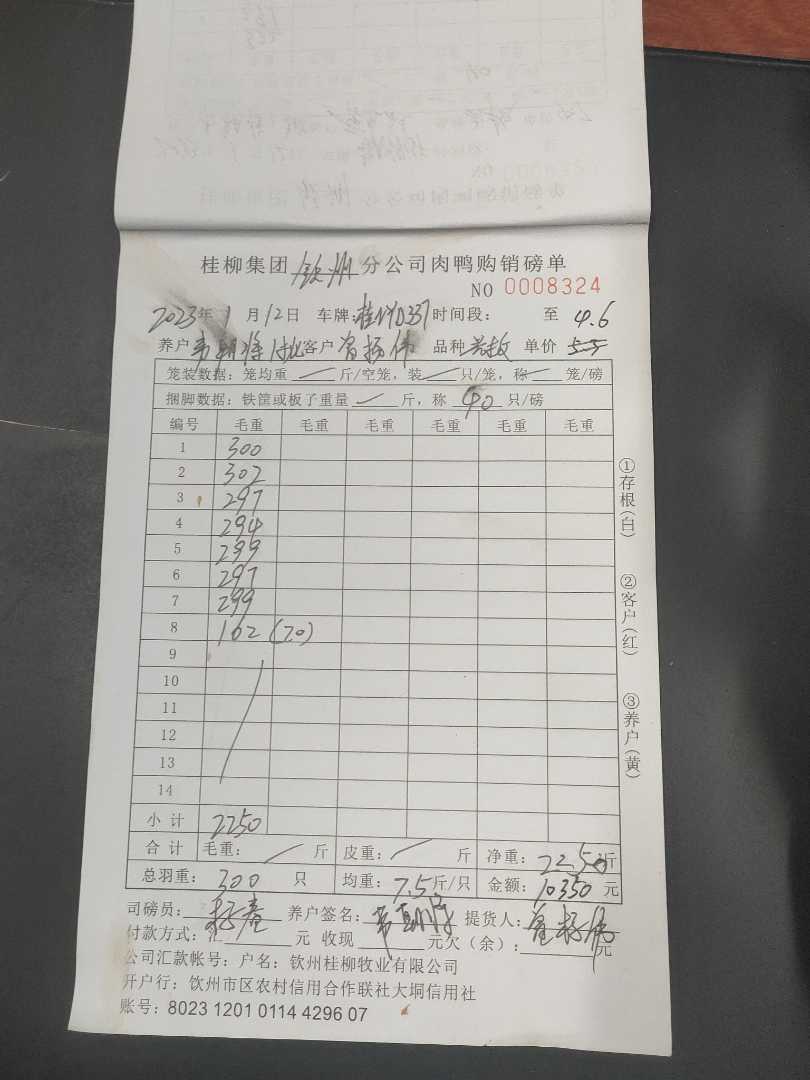 桂柳集团 钦州 分公司肉鸭购销磅单
NO 0008324
2023年 1 月 12日 车牌: 时间段: 至 4.6
养户 客户 品种 单价 5.5
笼装数据: 笼均重 斤/空笼, 装 只/笼, 称 笼/磅
捆脚数据: 铁筐或板子重量 斤, 称 40 只/磅
编号 毛重 毛重 毛重 毛重 毛重 毛重
1 300
2 302
3 297
4 294
5 299
6 297
7 299
8 162 (20)
9
10
11
12
13
14
小 计 2250
合 计 毛重: 斤 皮重: 斤 净重: 2250 斤
总羽重: 300 只 均重: 7.5 斤/只 金额: 10350 元
司磅员: 养户签名: 提货人:
付款方式: 汇 元 收现 元欠(余): 元
公司汇款帐号: 户名: 钦州桂柳牧业有限公司
开户行: 饮州市区农村信用合作联社大垌信用社
账号: 8023 1201 0114 4296 07
①存根(白)
②客户(红)
③养户(黄)